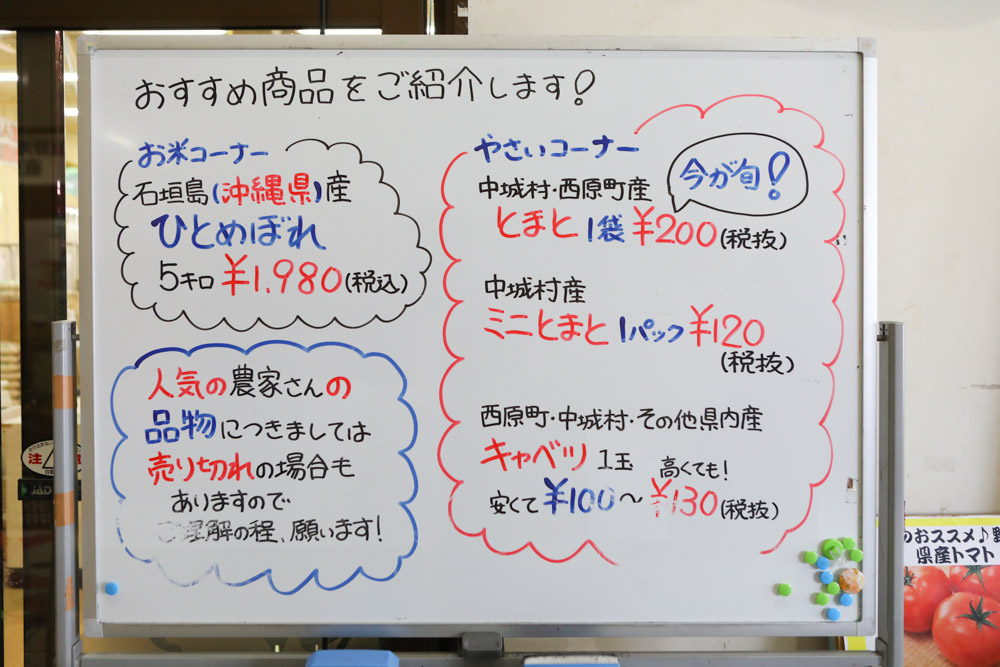 おすすめ商品をご紹介します!
お米コーナー
石垣島(沖縄県)産
ひとめぼれ
5キロ ¥1.980(税込)
人気の農家さんの
品物につきましては
売り切れの場合も
ありますので
ご理解の程、願います!
やさいコーナー
今が旬!
中城村・西原町産
とまと 1袋 ¥200(税抜)
中城村産
ミニとまと 1パック ¥120
(税抜)
西原町・中城村・その他県内産
キャベツ 1玉
高くても!
安くて¥100~¥130(税抜)
注
JAD
のおススメ♪野
県産トマト